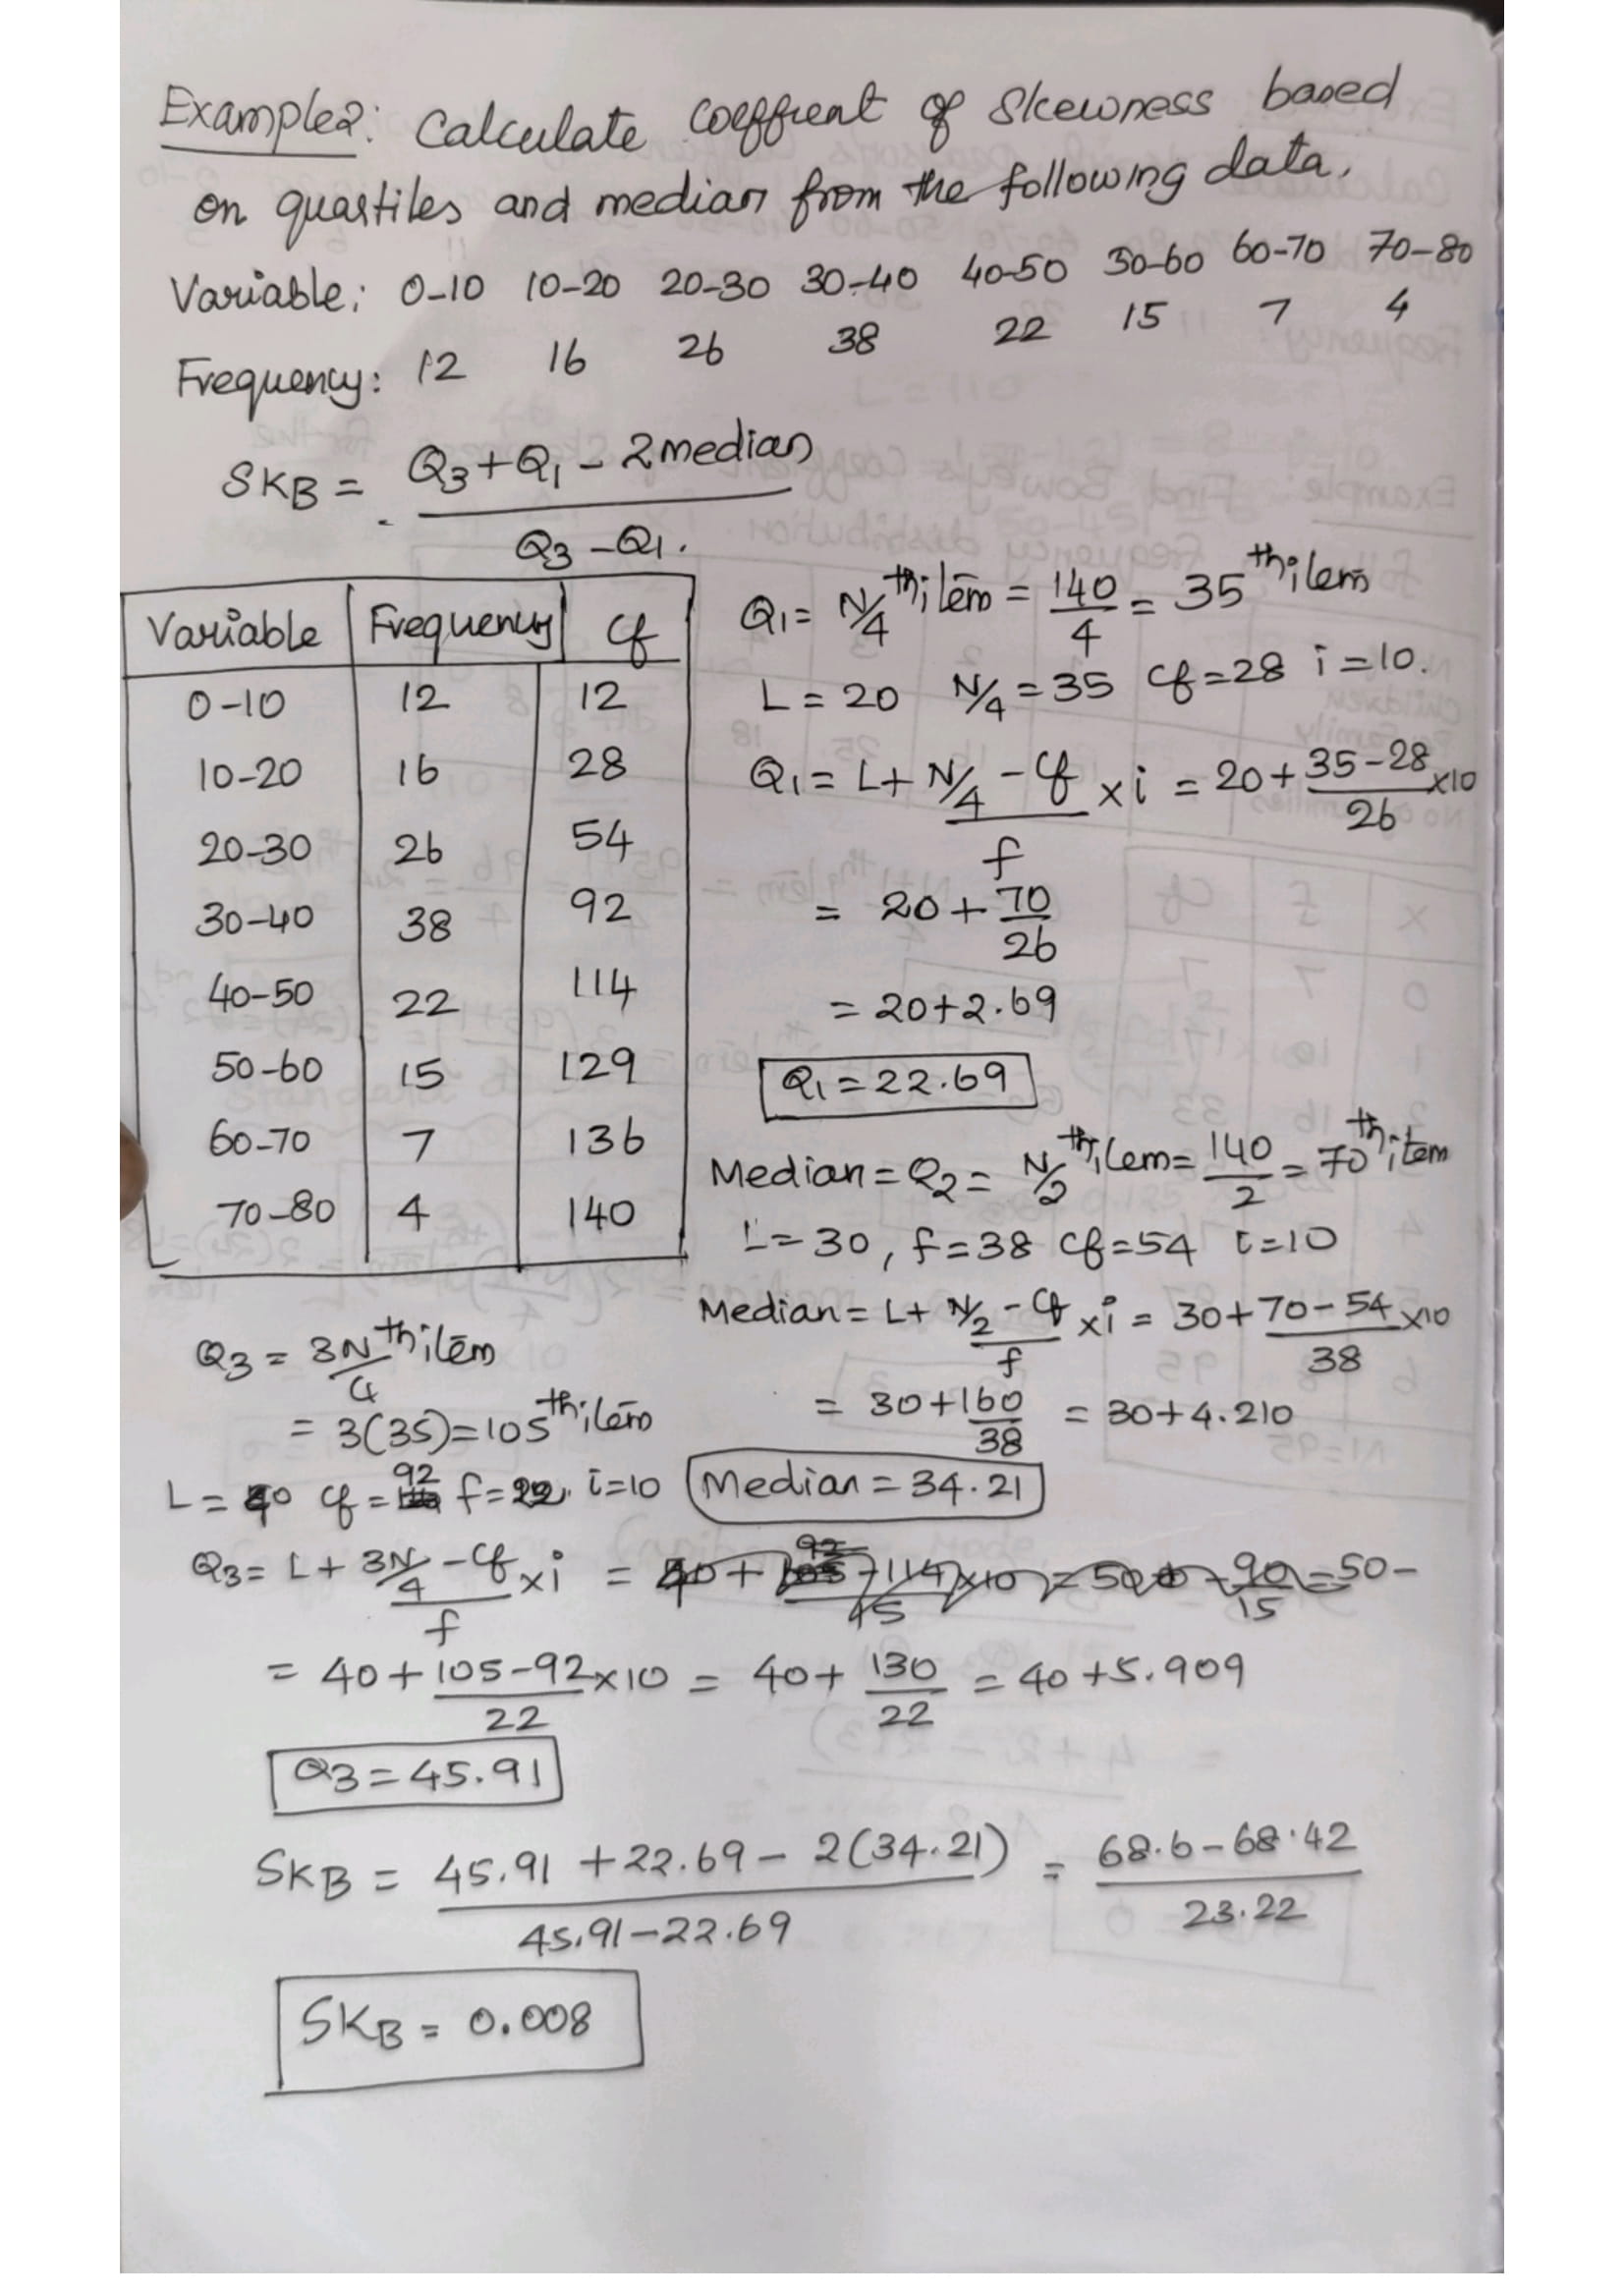 Example2: Calculate Coeffient of Skewness based
on quartiles and median from the following data.
Variable: 0-10 10-20 20-30 30-40 40-50 50-60 60-70 70-80
Frequency: 12 16 26 38 22 15 7 4
SKB = Q3+Q1-2median
Q3-Q1.
Variable Frequency Cf
0-10 12 12
10-20 16 28
20-30 26 54
30-40 38 92
40-50 22 114
50-60 15 129
60-70 7 136
70-80 4 140
Q1= N/4 th item = 140/4 = 35 th item
L=20 N/4=35 Cf=28 i=10.
Q1= L+ N/4-Cf/f ×i = 20+ 35-28/26 ×10
= 20+ 70/26
= 20+2.69
Q1=22.69
Median=Q2= N/2 th item= 140/2 = 70 th item
L=30, f=38 Cf=54 i=10
Median= L+ N/2-Cf/f ×i = 30+ 70-54/38 ×10
= 30+ 160/38 = 30+4.210
Median=34.21
Q3= 3N/4 th item
= 3(35)=105 th item
L=40 Cf=92 f=22, i=10
Q3= L+ 3N/4-Cf/f ×i =
= 40+ 105-92/22 ×10 = 40+ 130/22 = 40+5.909
Q3=45.91
SKB = 45.91+22.69-2(34.21)/45.91-22.69 = 68.6-68.42/23.22
SKB= 0.008